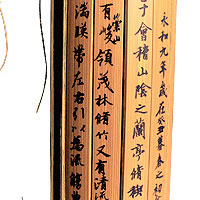 永和九年歲在癸丑暮春之初
于會稽山陰之蘭亭脩禊
有崇山峻領茂林脩竹又有清流
湍暎帶左右引以為流觴